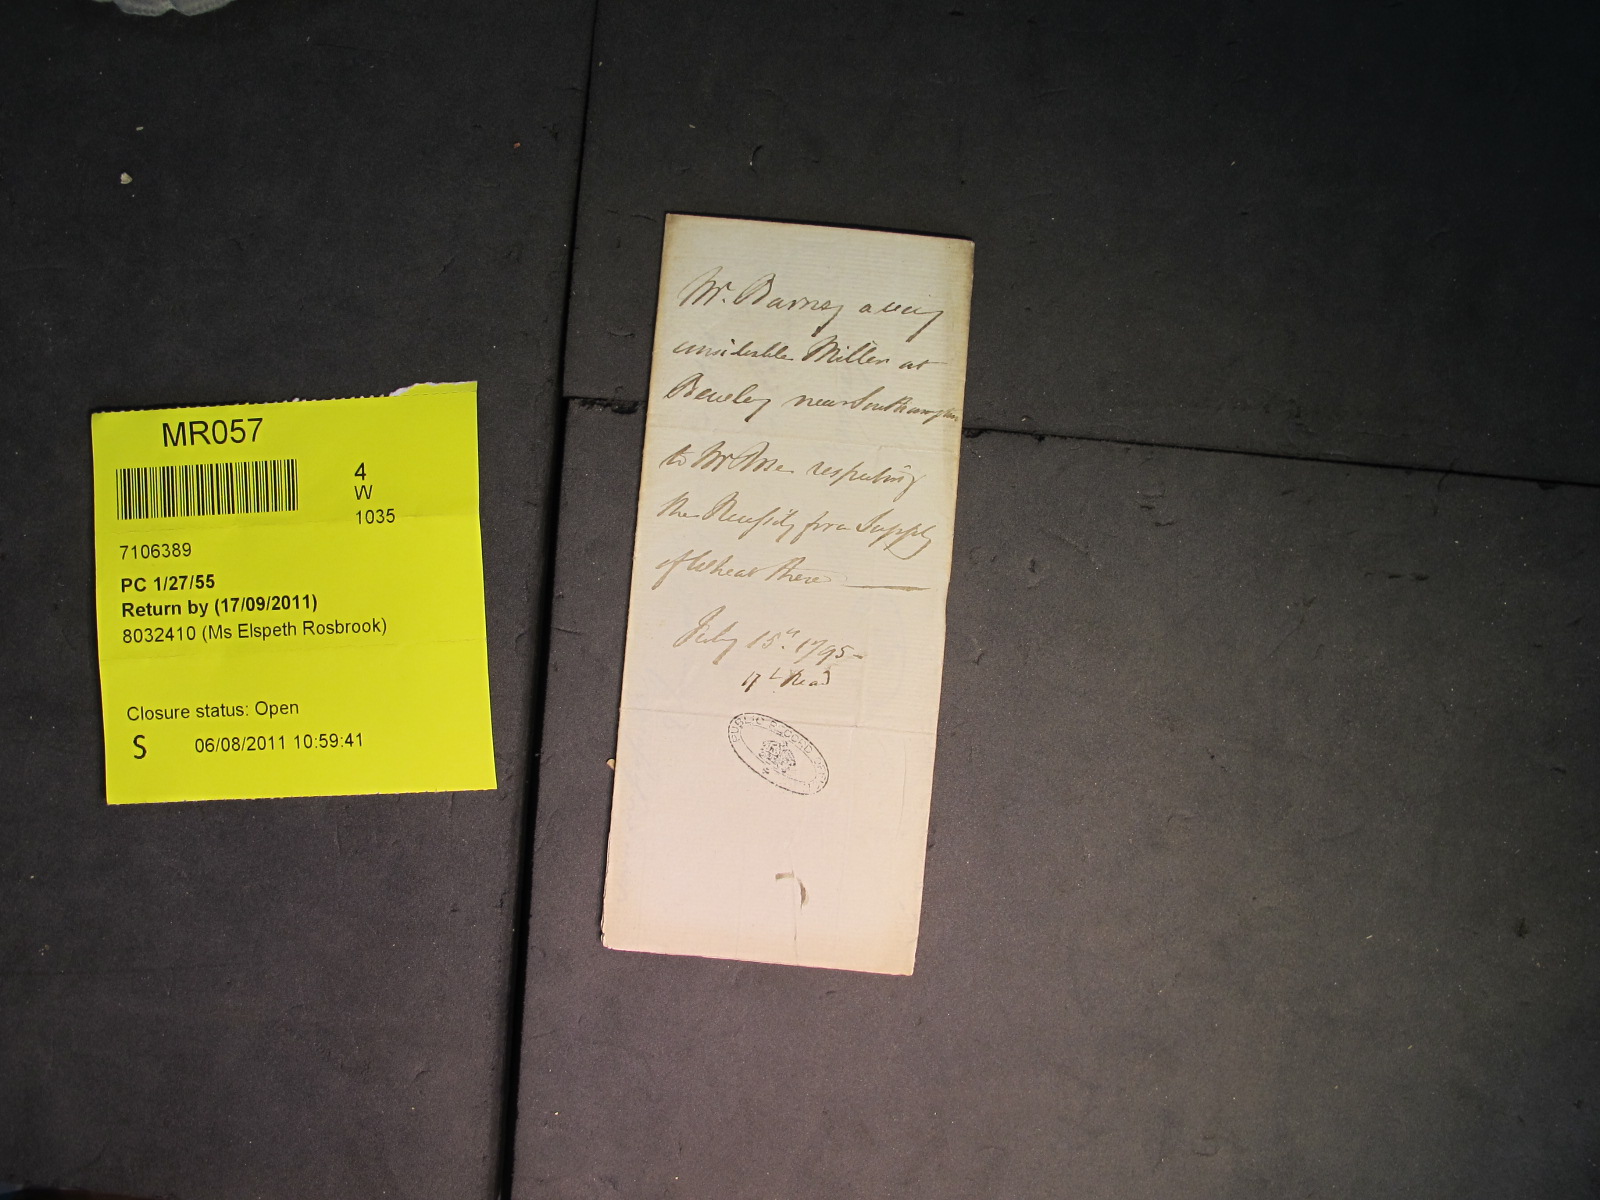 MR057
4
W
1035
7106389
PC 1/27/55
Return by (17/09/2011)
8032410 (Ms Elspeth Rosbrook)
Closure status: Open
S 06/08/2011 10:59:41
Mr. Barney a very
considerable Miller at
Beweley near Southampton
to Mr Rose respecting
the Necessity for a Supply
of Wheat there
July 15th 1795
17th Read
PUBLIC RECORD OFFICE